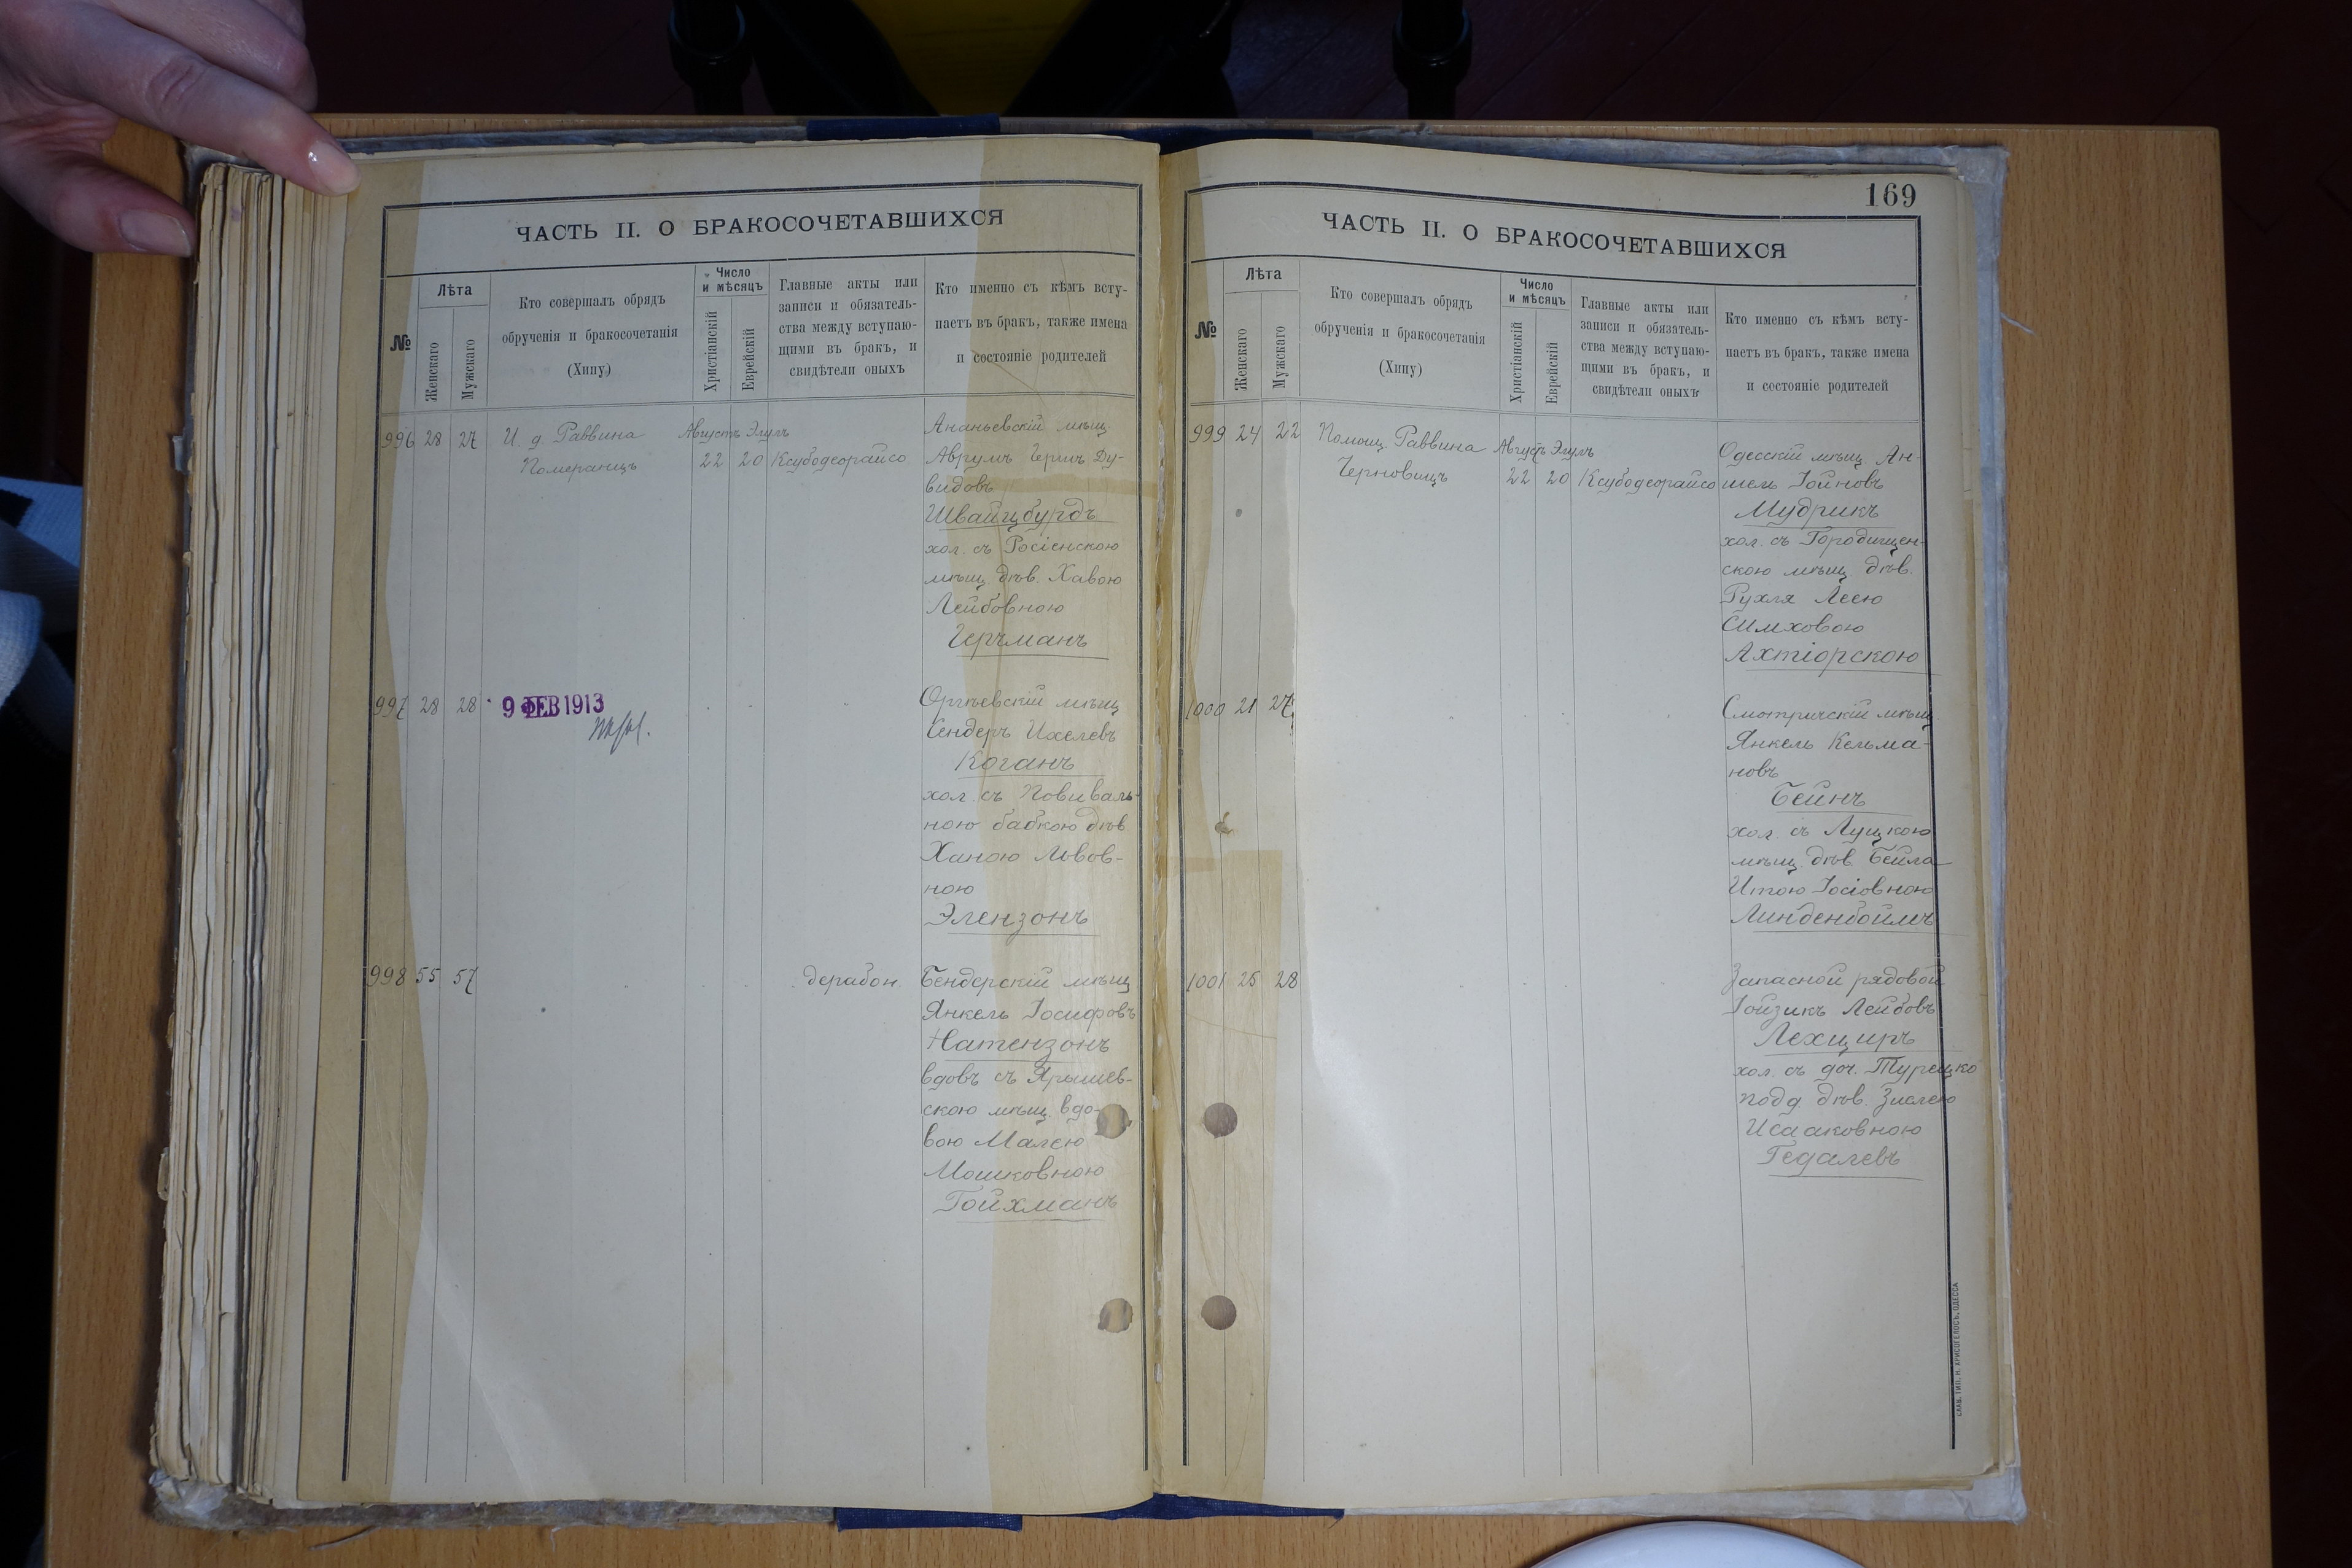 ЧАСТЬ II. О БРАКОСОЧЕТАВШИХСЯ
№
Лѣта
Женскаго
Мужскаго
Кто совершалъ обрядъ
обрученія и бракосочетанія
(Хипу)
Число
и мѣсяцъ
Христіанскій
Еврейскій
Главные акты или
записи и обязатель-
ства между вступаю-
щими въ бракъ, и
свидѣтели оныхъ
Кто именно съ кѣмъ всту-
паетъ въ бракъ, также имена
и состояніе родителей
996 28 27 И. д. Раввина Августъ Элулъ Ананьевскій мѣщ.
Померанцъ 22 20 Ксубодеорайсо Аврумъ Гершъ Ду-
видовъ
Швайцбурдъ
хол. съ Росіенскою
мѣщ. дѣв. Хавою
Лейбовною
Герчманъ
997 28 28 9 ФЕВ 1913 Оргѣевскій мѣщ
Сендеръ Ихелевъ
Коганъ
хол. съ Повиваль-
ною бабкою дѣв
Ханою Львов-
ною
Элензонъ
998 55 57 дерабон Бендерскій мѣщ
Янкель Іосифовъ
Натензонъ
вдовъ съ Ярышев-
скою мѣщ. вдо-
вою Малею
Мошковною
Гойхманъ
169
ЧАСТЬ II. О БРАКОСОЧЕТАВШИХСЯ
№
Лѣта
Женскаго
Мужскаго
Кто совершалъ обрядъ
обрученія и бракосочетанія
(Хипу)
Число
и мѣсяцъ
Христіанскій
Еврейскій
Главные акты или
записи и обязатель-
ства между вступаю-
щими въ бракъ, и
свидѣтели оныхъ
Кто именно съ кѣмъ всту-
паетъ въ бракъ, также имена
и состояніе родителей
999 24 22 Помощ. Раввина Августъ Элулъ Одесскій мѣщ. Ан-
Черновицъ 22 20 Ксубодеорайсо шель Іойновъ
Мудрикъ
хол. съ Городищен-
скою мѣщ. дѣв.
Рухля Леею
Симховою
Ахтіорскою
1000 21 27 Смотричскій мѣщ.
Янкель Кельма-
новъ
Бейнъ
хол. съ Луцкою
мѣщ. дѣв. Бейла
Итою Іосіовною
Линденбоймъ
1001 25 28 Запасной рядовой
Іойзикъ Лейбовъ
Лехциръ
хол. съ доч. Турецко
подд. дѣв. Зислею
Исааковною
Гедалевъ
СЛАВ. ТИП. Н. ХРИСОГЕЛОСЪ, ОДЕССА